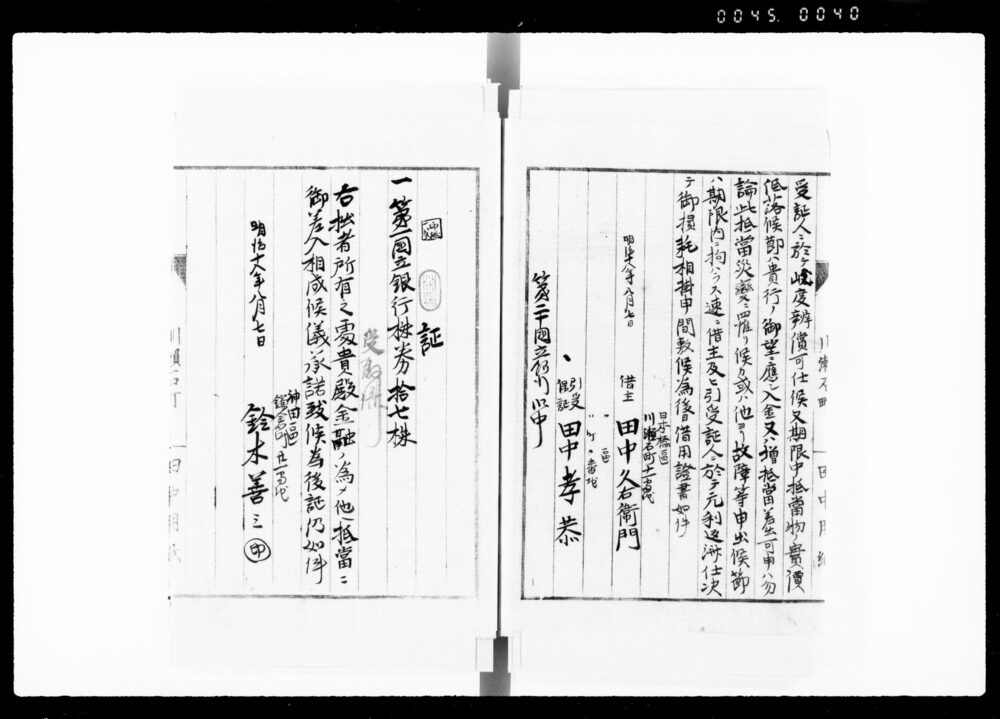 0045. 0040
受証人ニ於テ屹度辨償可仕候又期限中抵當物ノ實價
低落候節ハ貴行ノ御望ニ應シ入金又ハ増抵當差出可申ハ勿
論此抵當災變ニ罹リ候カ或ハ他ヨリ故障等申出候節
ハ期限内ニ拘ハラス速ニ借主及ヒ引受証人ニ於テ元利返済仕决
テ御損耗相掛申間敷候為後日借用證書如件
明治十八年八月七日
日本橋區
川瀬石町十一番地
借主 田中久右衛門
〃區
〃町〃番地
引受証 田中孝恭
第二十國立銀行御中
証
一第一國立銀行株券拾七株
右拙者所有之處貴殿金融ノ為メ他ヘ抵當ニ
御差入相成候儀承諾致候為後証仍如件
明治十八年八月七日
神田區
鈴木善三 印